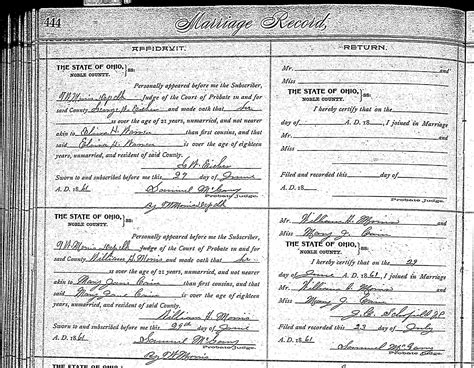 444
Marriage Record,
AFFIDAVIT.
RETURN.
THE STATE OF OHIO,
NOBLE COUNTY. } ss:
Personally appeared before me the Subscriber,
Judge of the Court of Probate in and for
said County, George and made oath that he
is over the age of 21 years, unmarried, and not nearer
akin to than first cousins, and that
is over the age of eighteen
years, unmarried, and resident of said County.
Sworn to and subscribed before me this 27 day of June
A. D. 1861 Samuel McGarry
Probate Judge.
By
Mr. and
Miss
THE STATE OF OHIO,
NOBLE COUNTY. } ss:
I hereby certify that on the
day of A. D. 18 , I joined in Marriage
Mr.
Miss
Filed and recorded this day of 18
Probate Judge.
THE STATE OF OHIO,
NOBLE COUNTY. } ss:
Personally appeared before me the Subscriber,
Judge of the Court of Probate in and for
said County, William H Morris and made oath that he
is over the age of 21 years, unmarried, and not nearer
akin to Mary Jane than first cousins, and that
Mary Jane is over the age of eighteen
years, unmarried, and resident of said County.
William H Morris
Sworn to and subscribed before me this 29th day of June
A. D. 1861 Samuel McGarry
Probate Judge.
By
Mr. William H. Morris and
Miss Mary J.
THE STATE OF OHIO,
NOBLE COUNTY. } ss:
I hereby certify that on the 29
day of June A. D. 1861, I joined in Marriage
Mr. William Morris
Miss Mary J.
Filed and recorded this 23 day of July
Samuel McGarry
Probate Judge.